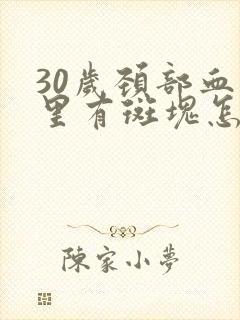 30歲頚部血
里有斑塊怎
陳家小夢